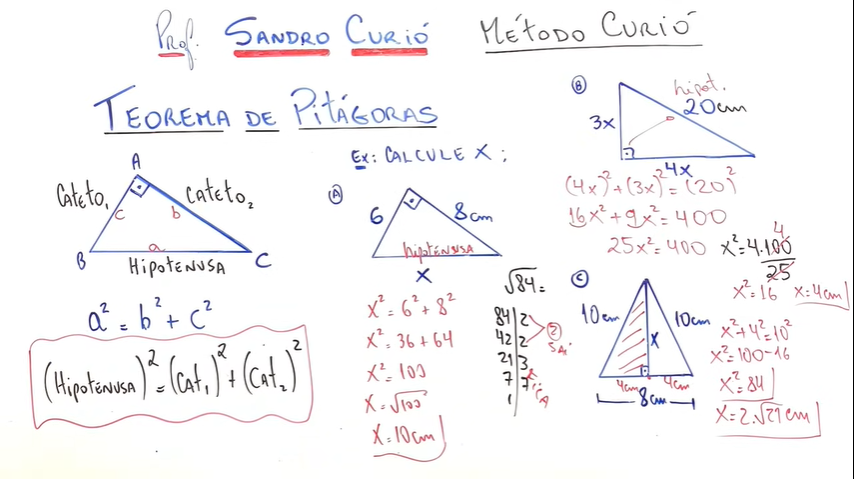 Prof. SANDRO CURIÓ MÉTODO CURIÓ
TEOREMA DE PITÁGORAS
A
CATETO₁
CATETO₂
c
b
a
B
HIPOTENUSA
C
a² = b² + c²
(HIPOTENUSA)² = (CAT₁)² + (CAT₂)²
Ex: CALCULE X;
A
6
8cm
hipotENUSA
X
X² = 6² + 8²
X² = 36 + 64
X² = 100
X = √100
X = 10cm
√84 =
84 | 2
42 | 2
21 | 3
7 | 7
1
2
B
hipot.
20cm
3x
4x
(4x)² + (3x)² = (20)²
16x² + 9x² = 400
25x² = 400
X² = 4.100
25
4
X² = 16 X = 4cm
C
10cm
10cm
X
4cm
4cm
8cm
X² + 4² = 10²
X² = 100 - 16
X² = 84
X = 2.√21 cm